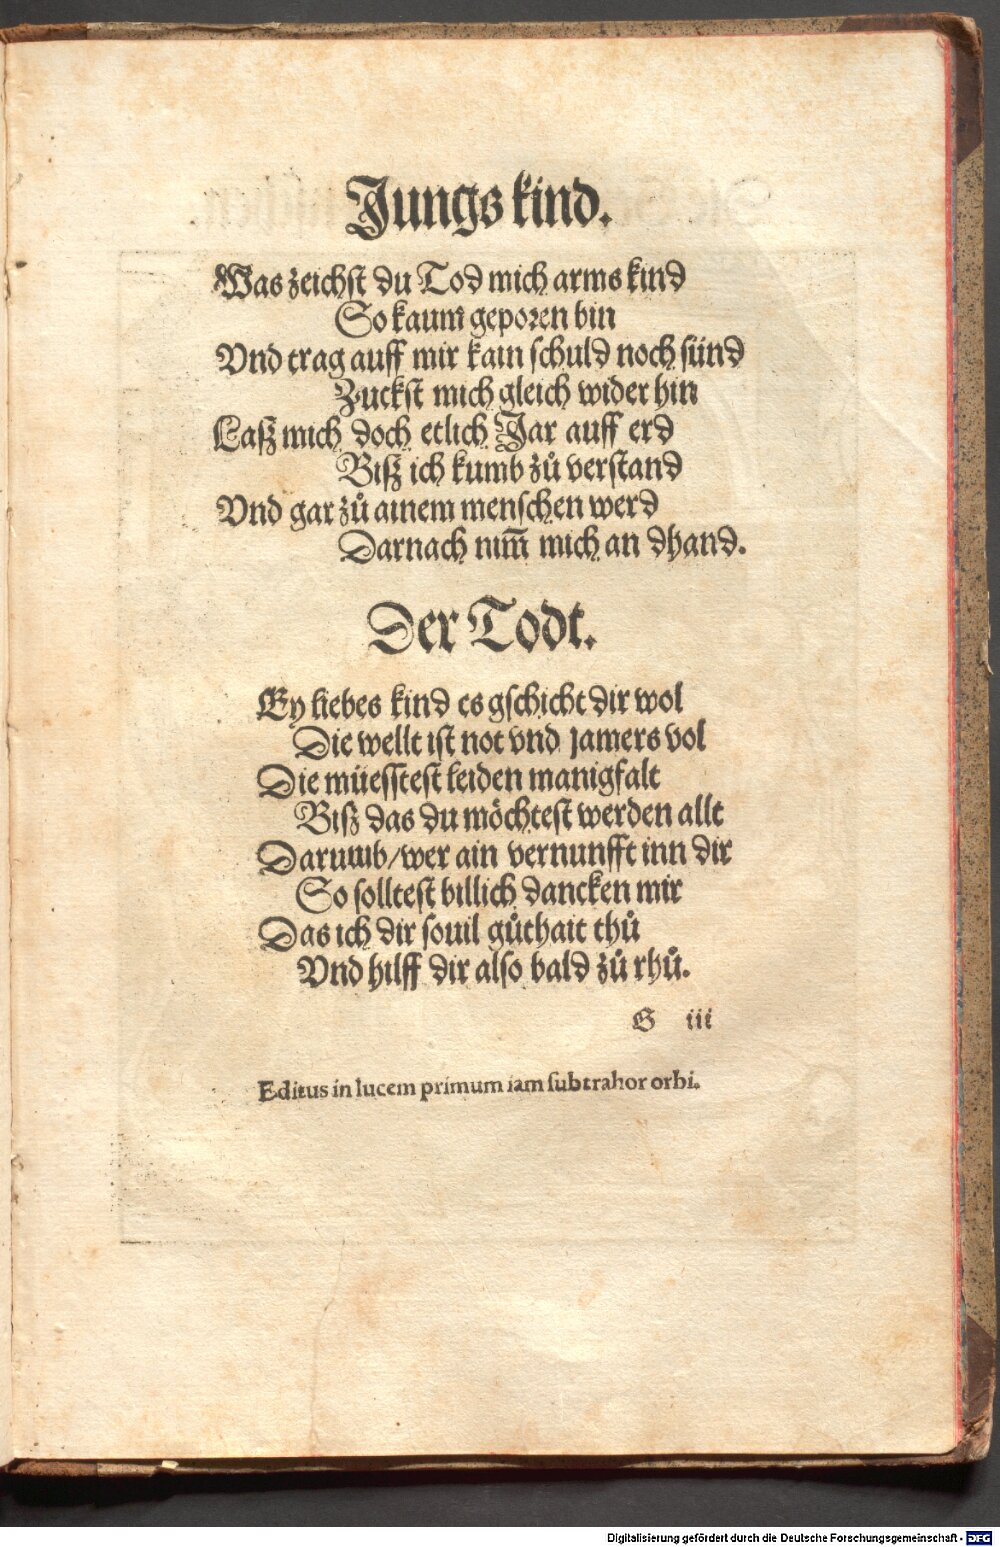 Jungs kind.
Was zeichst du Tod mich arms kind
So kaum geporen bin
Vnd trag auff mir kain schuld noch sünd
Zuckst mich gleich wider hin
Laß mich doch etlich Jar auff erd
Biß ich kumb zů verstand
Vnd gar zů ainem menschen werd
Darnach nim̃ mich an dhand.
Der Todt.
Ey liebes kind es gschicht dir wol
Die wellt ist not vnd jamers vol
Die müesstest leiden manigfalt
Biß das du möchtest werden allt
Darumb/wer ain vernunfft inn dir
So solltest billich dancken mir
Das ich dir souil gůthait thů
Vnd hilff dir also bald zů rhů.
G iii
Editus in lucem primum iam subtrahor orbi.
Digitalisierung gefördert durch die Deutsche Forschungsgemeinschaft - DFG